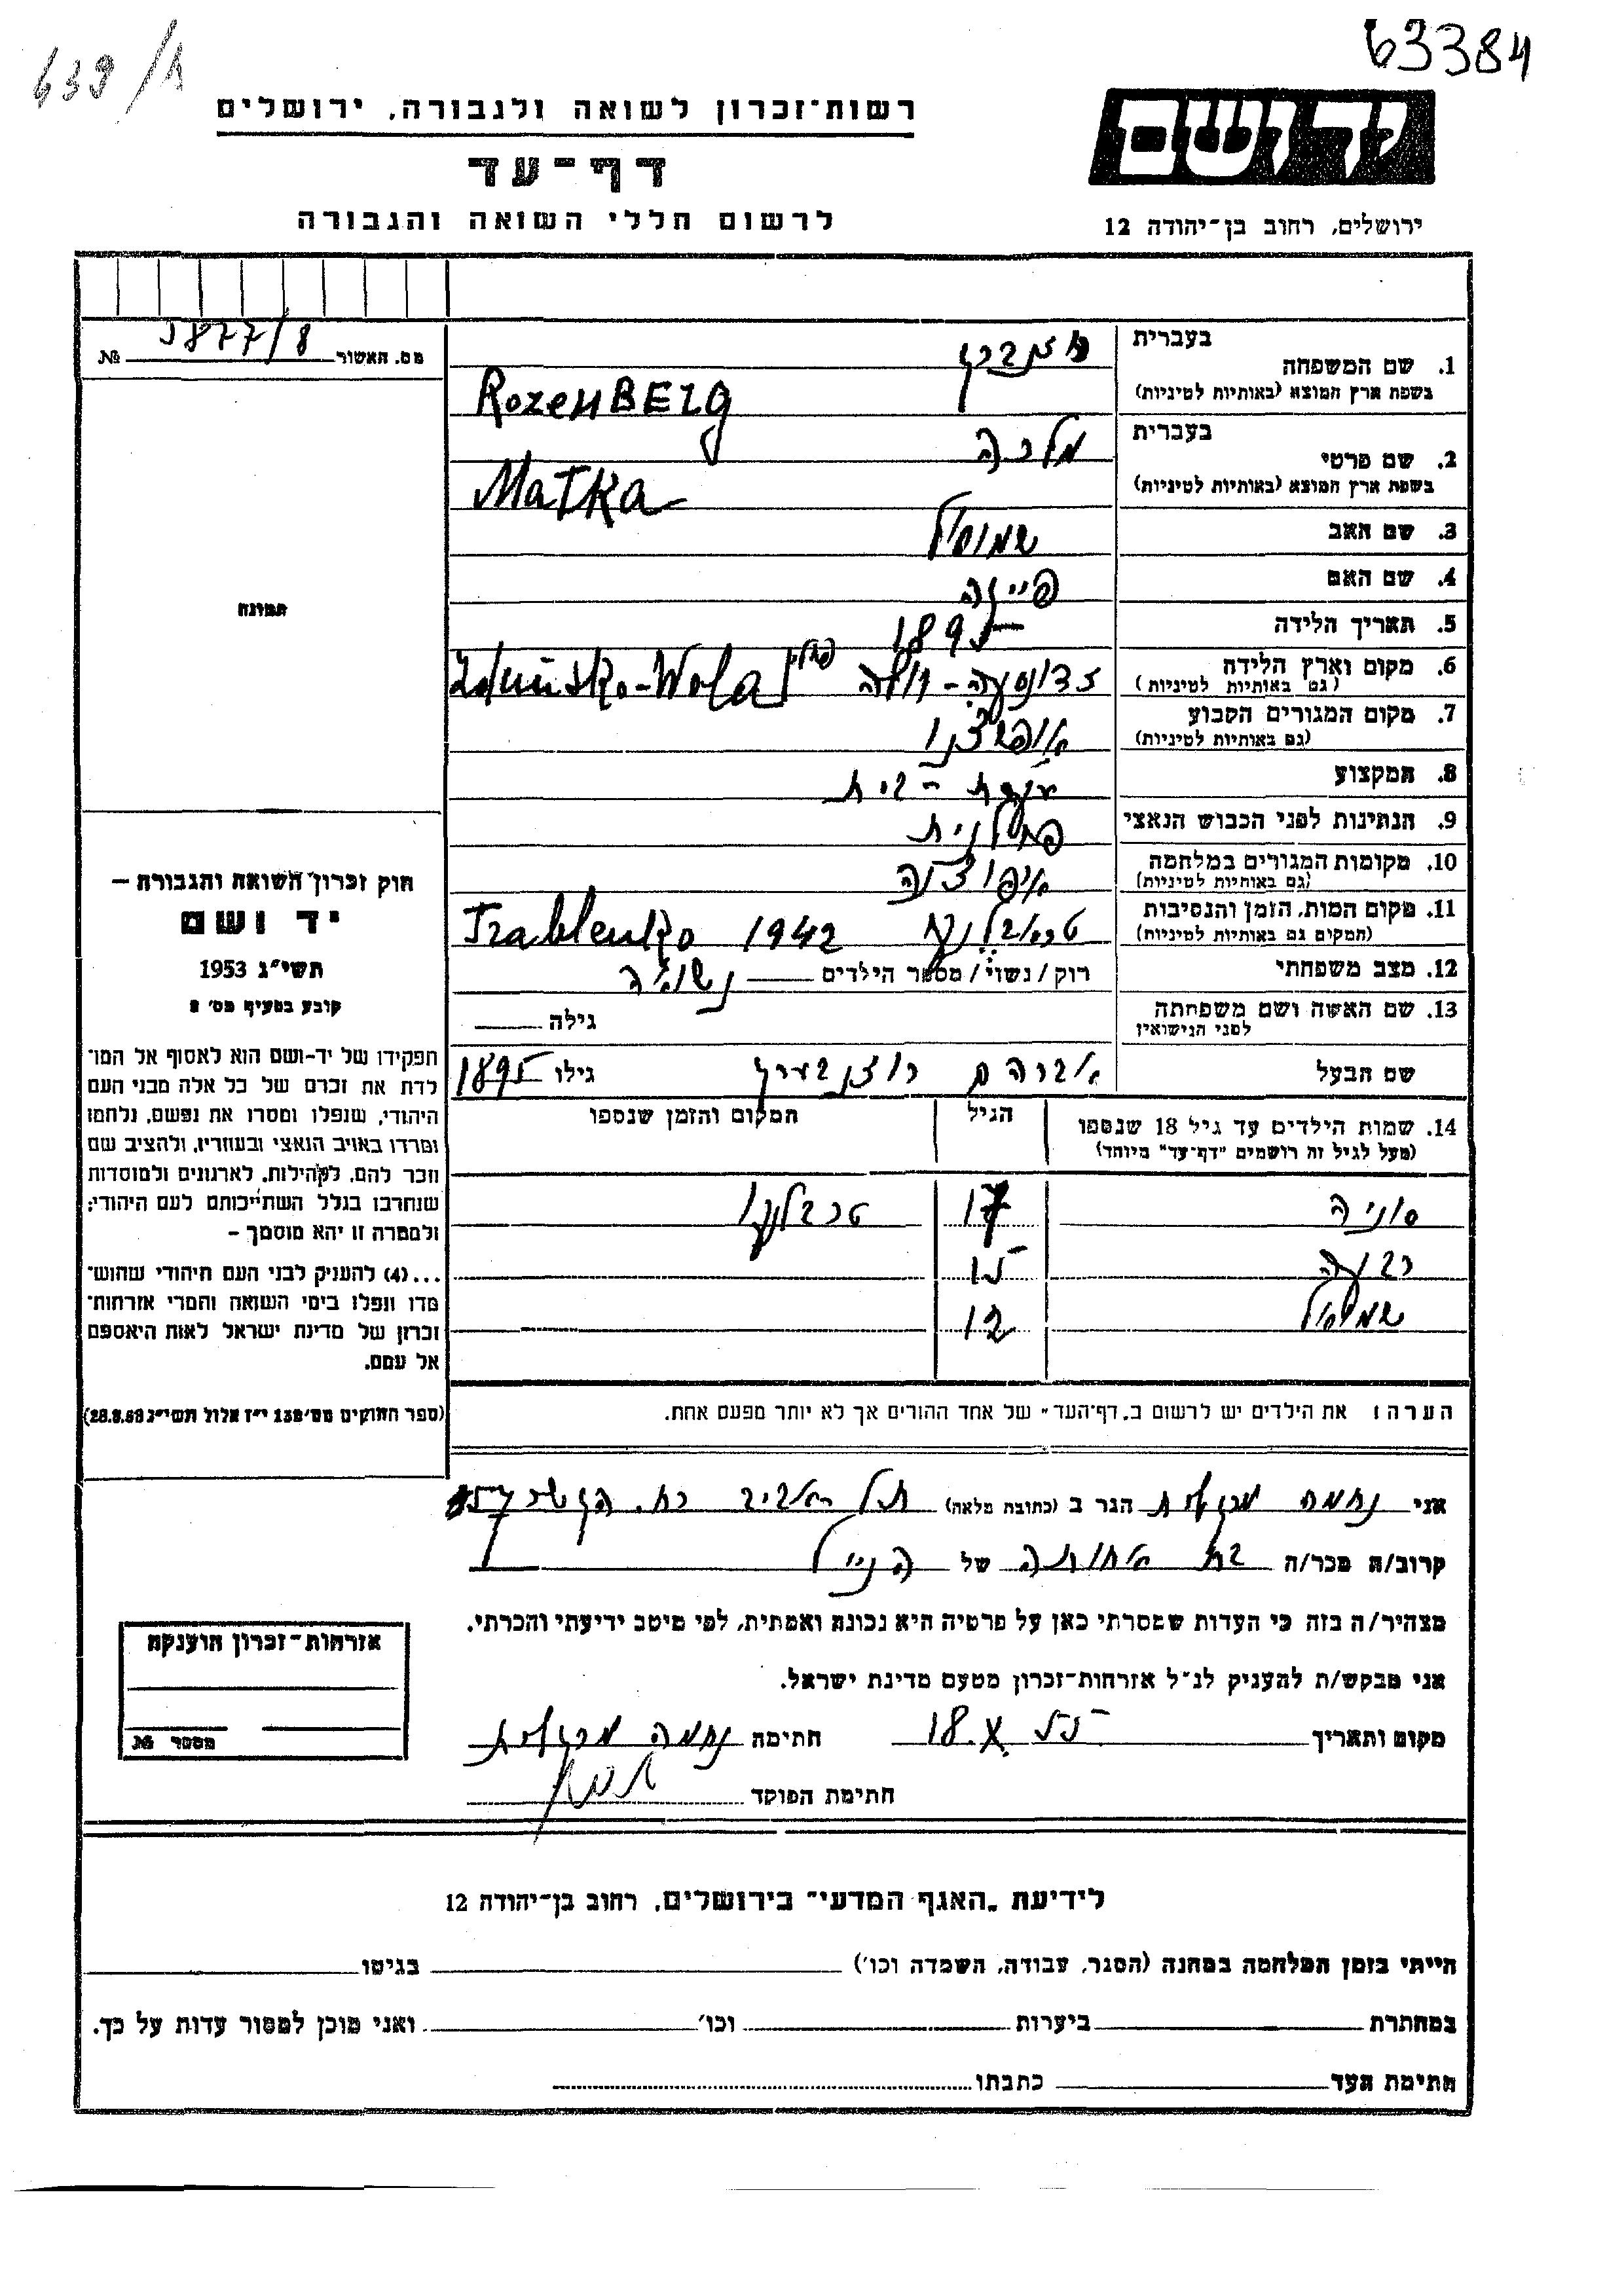 63384
439/א
יד ושם
רשות־זכרון לשואה ולגבורה, ירושלים
דף־עד
לרשום חללי השואה והגבורה
ירושלים, רחוב בן־יהודה 12
מס. האשור 1877/8 №
תמונה
חוק זכרון השואה והגבורה –
יד ושם
תשי״ג 1953
קובע בסעיף מס׳ 2
תפקידו של יד-ושם הוא לאסוף אל המו־
לדת את זכרם של כל אלה מבני העם
היהודי, שנפלו ומסרו את נפשם, נלחמו
ומרדו באויב הנאצי ובעוזריו, ולהציב שם
וזכר להם, לקהילות, לארגונים ולמוסדות
שנחרבו בגלל השתייכותם לעם היהודי;
ולמטרה זו יהא מוסמך –
...(4) להעניק לבני העם היהודי שהוש־
מדו ונפלו בימי השואה והמרי אזרחות־
זכרון של מדינת ישראל לאות היאספם
אל עמם.
(ספר החוקים מס׳ 132 י״ז אלול תשי״ג 28.8.53)
בעברית
1. שם המשפחה
בשפת ארץ המוצא (באותיות לטיניות) RozenBERg
בעברית
2. שם פרטי מלכה
בשפת ארץ המוצא (באותיות לטיניות) Malka
3. שם האב שמואל
4. שם האם פייגה
5. תאריך הלידה 1895
6. מקום וארץ הלידה זדונסקה-וולה פולין Zdunsko-Wola
(גם באותיות לטיניות)
7. מקום המגורים הקבוע אופוצנו
(גם באותיות לטיניות)
8. המקצוע עקרת-בית
9. הנתינות לפני הכבוש הנאצי פולנית
10. מקומות המגורים במלחמה אופוצנה
(גם באותיות לטיניות)
11. מקום המות, הזמן והנסיבות 1942 Trablenko
(המקום גם באותיות לטיניות)
12. מצב משפחתי רוק/נשוי/מספר הילדים נשואה
13. שם האשה ושם משפחתה
לפני הנישואין גילה
שם הבעל אברהם רוזנברג גילו 1895
14. שמות הילדים עד גיל 18 שנספו הגיל המקום והזמן שנספו
(מעל לגיל זה רושמים "דף־עד" מיוחד)
סוניה 17 טרבלנקו
רבקה 15
שמואל 12
הערה: את הילדים יש לרשום ב„דף־העד״ של אחד ההורים אך לא יותר מפעם אחת.
אני נחמה מרגלית הגר ב (כתובת מלאה) תל אביב רח.
קרוב/ה מכר/ה בת אחותה של הנ״ל
מצהיר/ה בזה כי העדות שמסרתי כאן על פרטיה היא נכונה ואמתית, לפי מיטב ידיעתי והכרתי.
אני מבקש/ת להעניק לנ״ל אזרחות־זכרון מטעם מדינת ישראל.
מקום ותאריך 18.X.55 חתימה נחמה מרגלית
חתימת הפוקד
אזרחות־זכרון הוענקה
מספר №
לידיעת „האגף המדעי״ בירושלים, רחוב בן־יהודה 12
הייתי בזמן המלחמה במחנה (הסגר, עבודה, השמדה וכו׳) בגיטו
במחתרת ביערות וכו׳ ואני מוכן למסור עדות על כך.
חתימת העד כתבתו